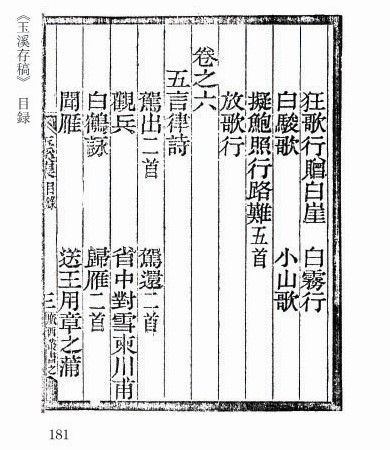 狂歌行贈白崖　白霧行
白駿歌　小山歌
擬鮑照行路難五首
放歌行
卷之六
五言律詩
駕出二首　駕還二首
觀兵　省中對雪柬川甫
白鶴詠　歸雁二首
聞雁　送王用章之蒲
目錄　三　西叢書之
《玉溪存稿》　目録
181